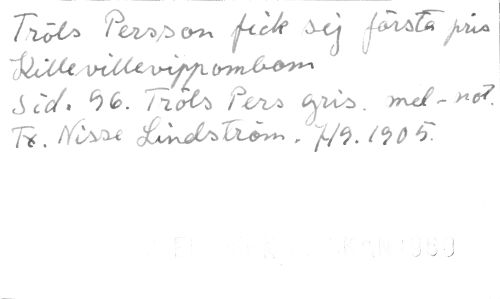 Tröls Persson fick sej första pris
Killevillevippombom
Sid. 96. Tröls Pers gris. mel-not.
Tx. Nisse Lindström. 7/9. 1905.